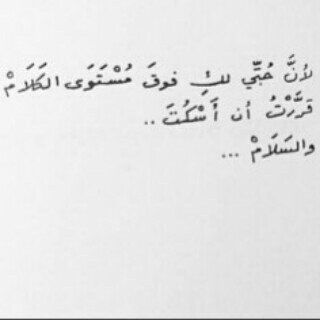 لأنَّ حُبّي لكِ فوقَ مُسْتَوَى الكَلَامْ
قرَّرْتُ أن أَسْكُتَ ..
والسَلَامْ ...